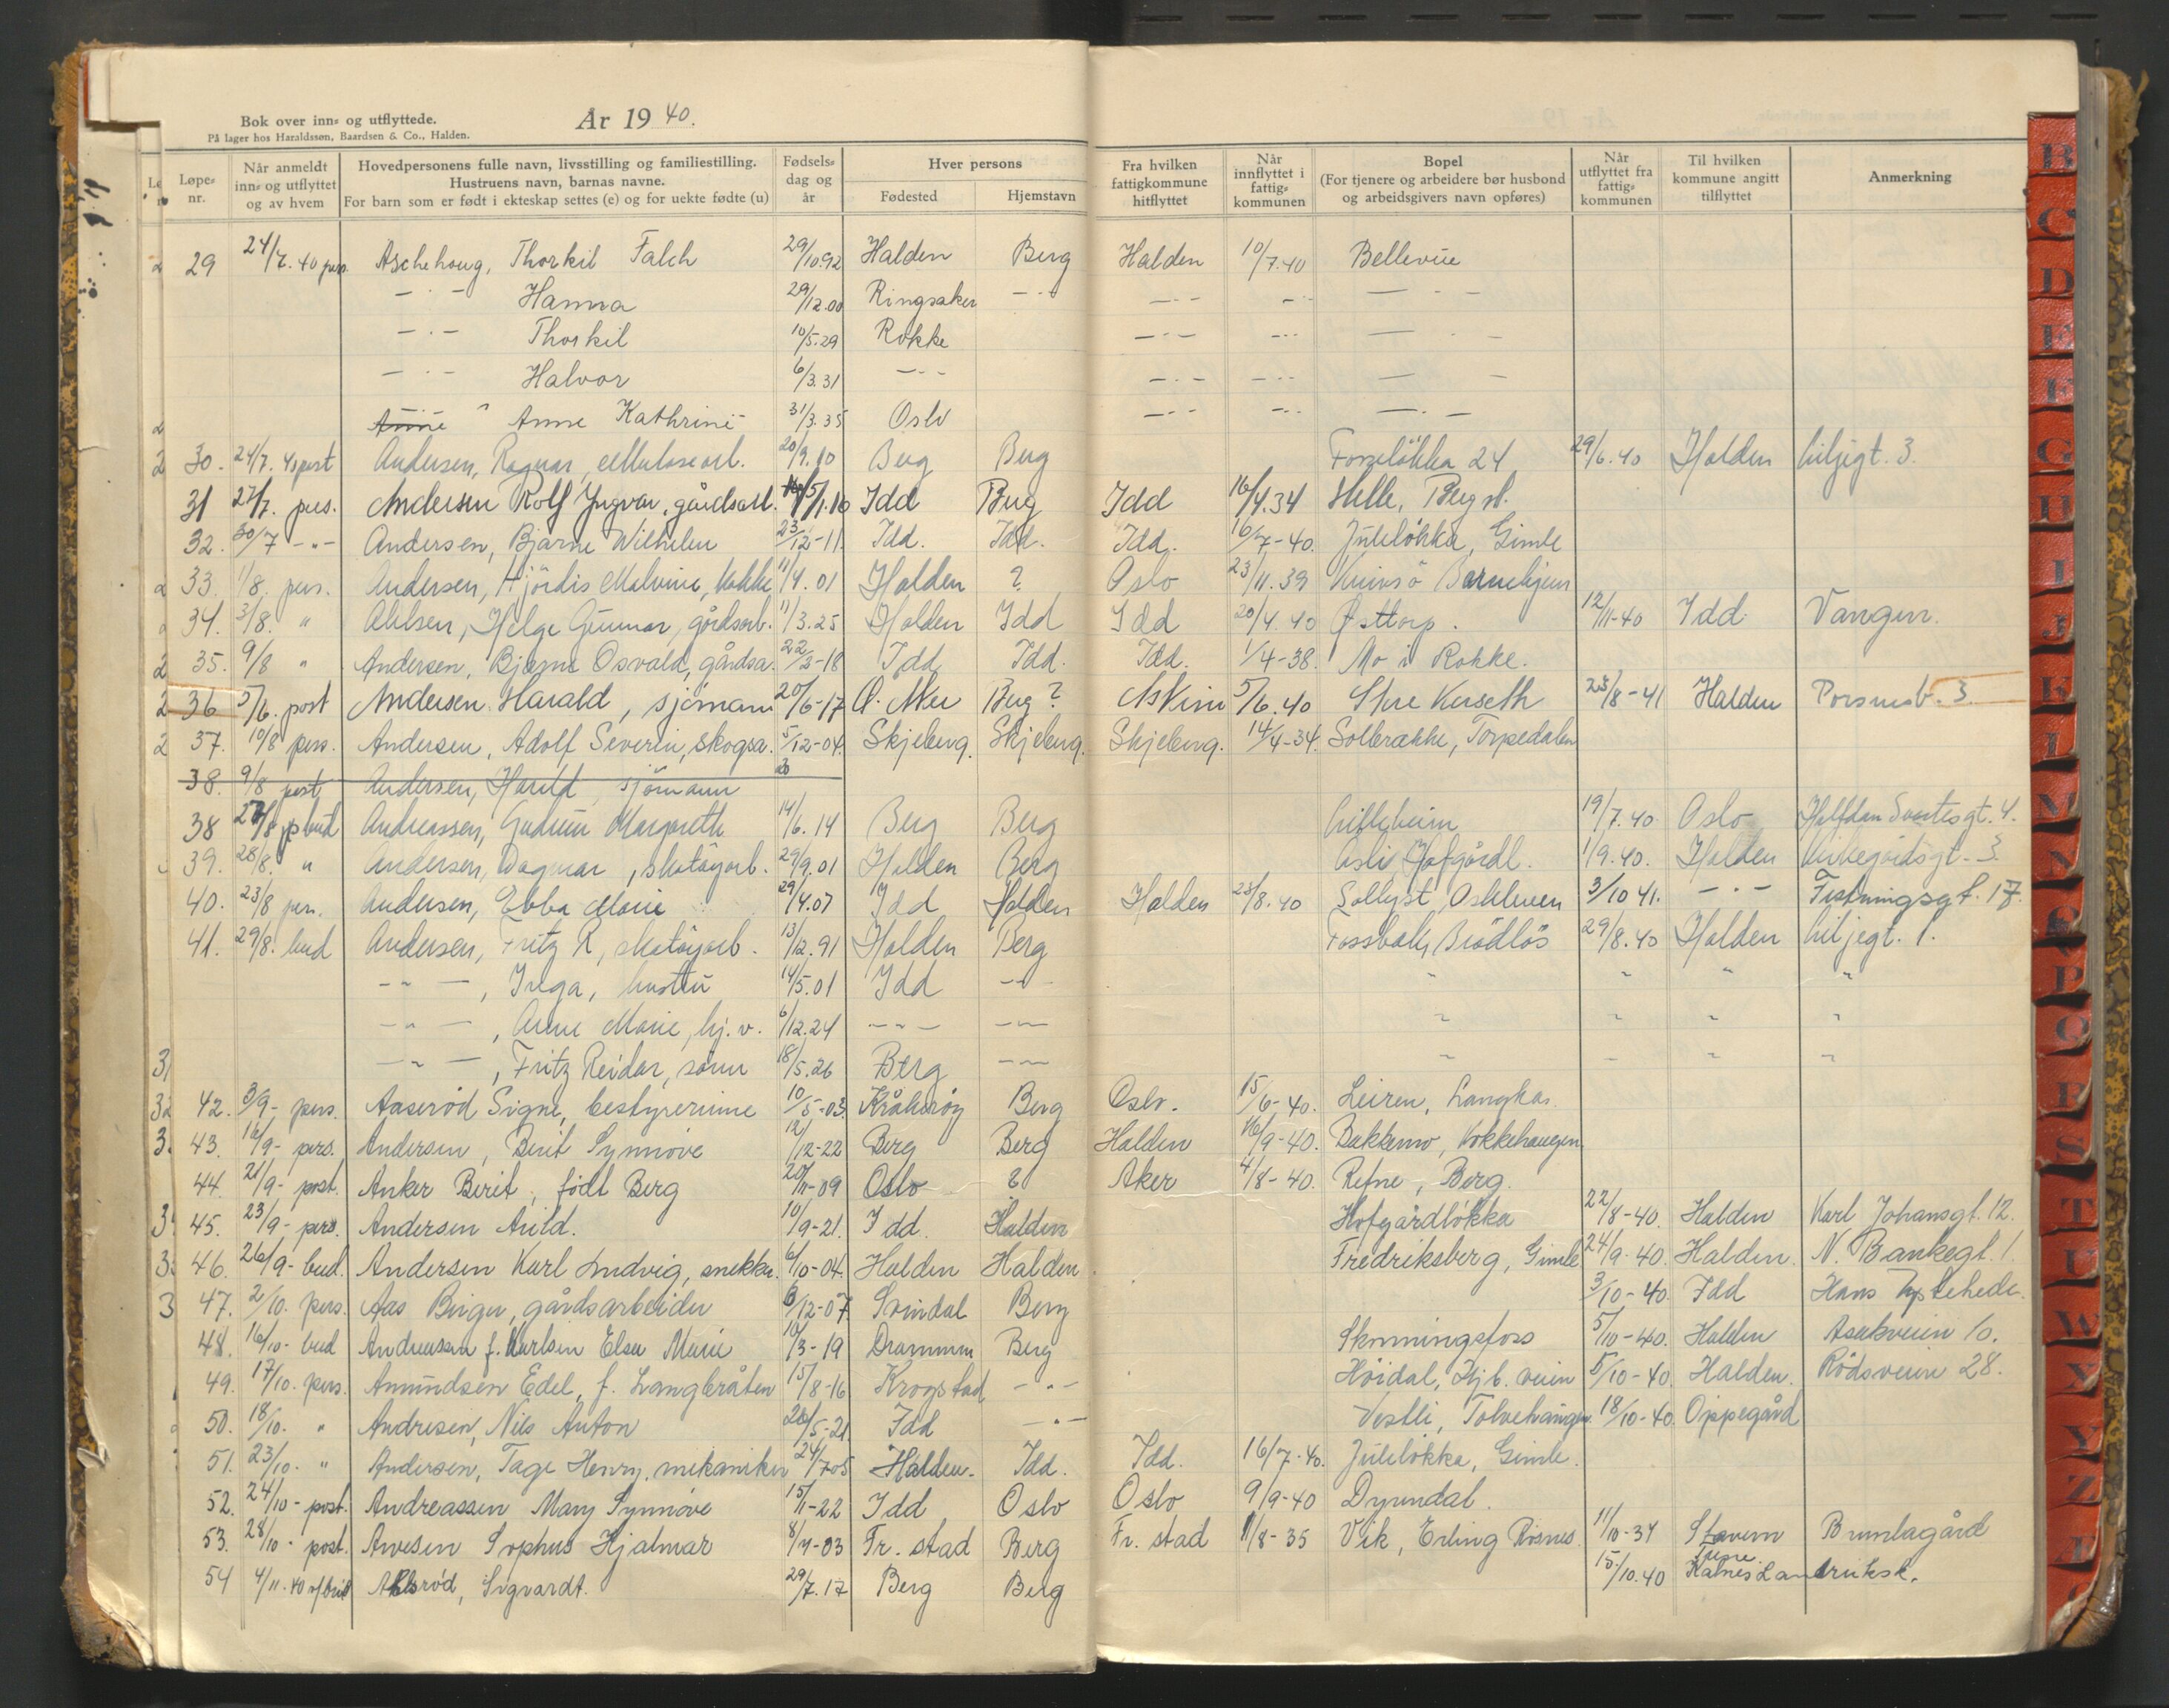 Bok over inn- og utflyttede.
På lager hos Haraldssøn, Baardsen & Co., Halden.
År 1940.
Løpe-nr. Når anmeldt inn- og utflyttet og av hvem Hovedpersonens fulle navn, livsstilling og familiestilling. Hustruens navn, barnas navne. For barn som er født i ekteskap settes (e) og for uekte fødte (u) Fødsels-dag og år Hver persons Fødested Hjemstavn Fra hvilken fattigkommune hitflyttet Når innflyttet i fattig-kommunen Bopel (For tjenere og arbeidere bør husbond og arbeidsgivers navn opføres) Når utflyttet fra fattig-kommunen Til hvilken kommune angitt tilflyttet Anmerkning
29 24/7.40 pers. Aschehoug, Thorkil Falch 29/10.92 Halden Berg Halden 10/7.40 Bellevue
— · — Hanna 29/12.00 Ringsaker — · — — · — — · — — · —
— · — Thorkil 10/5.29 Rokke — · — — · — — · —
— · — Halvor 6/3.31 — · — — · — — · — — —
Anne Kathrine 31/3.35 Oslo — · — — · — — · —
30. 24/7. post Andersen, Ragnar, cellulosearb. 20/9.10 Berg Berg Fosseløkka 24 29/6.40 Halden Liljegt. 3.
31 27/7. pers. Andersen Rolf Yngvar, gårdsarb. Idd Berg Idd 16/4.34 Helle, Berg st.
32. 30/7 — " — Andersen, Bjarne Wilhelm 23/12-11. Idd. Idd. Idd. 16/7-40. Juleløkka, Gimle
33. 1/8. pers. Andersen, Hjördis Malvine, kokke 11/4.01 Halden ? Oslo 23/11.39 Knivsö Barnehjem
34. 3/8. " Ahlsen, Helge Gunnar, gårdsarb. 11/3.25 Halden Idd Idd 20/4.40 Østtorp. 12/11-40 Idd. Vangen.
35. 9/8 " Andersen, Bjarne Osvald, gårdsa. 22/2-18 Idd Idd. Idd. 1/4-38. Mo i Rokke.
36 5/6. post Andersen Harald, sjömann 20/6-17 Berg ? Askim 5/6.40 23/8-41 Halden Porsnesb. 3.
37. 10/8 pers. Andersen, Adolf Severin, skogsa. 5/12-04. Skjeberg. Skjeberg. Skjeberg. 14/4-34. Solbrække, Torpedalen
38. 9/8 post Andersen, Harald, sjömann
38 27/8 p bud Andreassen, Gudrun Margareth 14/6.14 Berg Berg Lilleheim 19/7.40. Oslo Halfdan Svartesgt. 4.
39. 28/8. " Andersen, Dagmar, skotöyarb. 29/9.01 Halden Berg Asli, Hofgårdl. 1/9.40. Halden Kirkegårdsgt. 3.
40. 23/8 pers. Andersen, Ebba Marie 29/4.07 Idd Halden Halden 23/8.40 Sollyst, Oskleven 3/10 41. — · — Festningsgt. 17.
41. 29/8. bud Andersen, Fritz R, skotöyarb. 13/12.91 Halden Berg Fossbakk, Brödlös 29/8.40 Halden Liljegt. 1.
— " —, Inga, hustru 14/5.01 Idd — " — " " " "
— " —, Anne Marie, hj. v. 6/12.24 — " — — " — " " " "
— " —, Fritz Reidar, sönn 18/5.26 Berg — " — " " " "
42. 3/9- pers. Aaserød Signe, bestyrerinne 10/5-03. Kråkerøy Berg Oslo. 15/6-40. Leiren, Langkas.
43. 16/9- pers. Andersen, Berit Synnøve 12/12-22 Berg Berg Halden 16/9-40. Bakkemo, Kokkehaugen
44. 21/9- post. Anker Berit, født Berg 20/11-09 Oslo ? Aker 4/8-40. Refne, Berg.
45. 23/9- pers. Andersen Arild. 10/9-21. Idd. Halden Hofgårdløkka 22/8-40. Halden Karl Johansgt. 12.
46. 26/9- bud. Andersen Karl Ludvig, snekker. 6/10-04. Halden Halden Fredriksberg, Gimle 24/9-40. Halden. N. Bankegt. 1.
47. 2/10. pers. Aas Birger, gårdsarbeider 6/12-07 Svindal Berg 3/10-40. Idd Hans Tystehede.
48. 16/10- bud Andreassen f. Karlsen Elsa Marie 10/3-19 Drammen Berg Skonningsfoss 5/10-40. Halden Asakveien 10.
49. 17/10. pers. Amundsen Edel, f. Langbråten 15/8-16 Krogstad — " — Höidal, Hjb. veien 5/10-40. Halden. Rödsveien 28.
50. 18/10. " Andresen, Nils Anton 26/5-21 Idd — " — Vestli, Tolvehaugen. 18/10-40. Oppegård
51. 23/10. " Andersen, Tage Henry, mekaniker 24/7-05 Halden. Idd. Idd. 16/7-40. Juleløkka, Gimle.
52. 24/10- post. Andreassen Mary Synnøve 15/11-22 Idd Oslo Oslo 9/9-40 Dyrendal.
53. 28/10- post. Arvesen Sophus Hjalmar 8/4-03 Fr. stad Berg Fr. stad 1/8-35 Vik, Erling Risnes 11/10-37 Stavern Brunlagård
54 4/11.40 Ahlsrød, Sigvardt. 29/7.17 Berg Berg 15/10.40 Tune Kalnes Landbruksk.
B
C
D
E
F
G
H
I
J
K
L
M
N
O
P
R
S
T
U
W
X
Y
Z